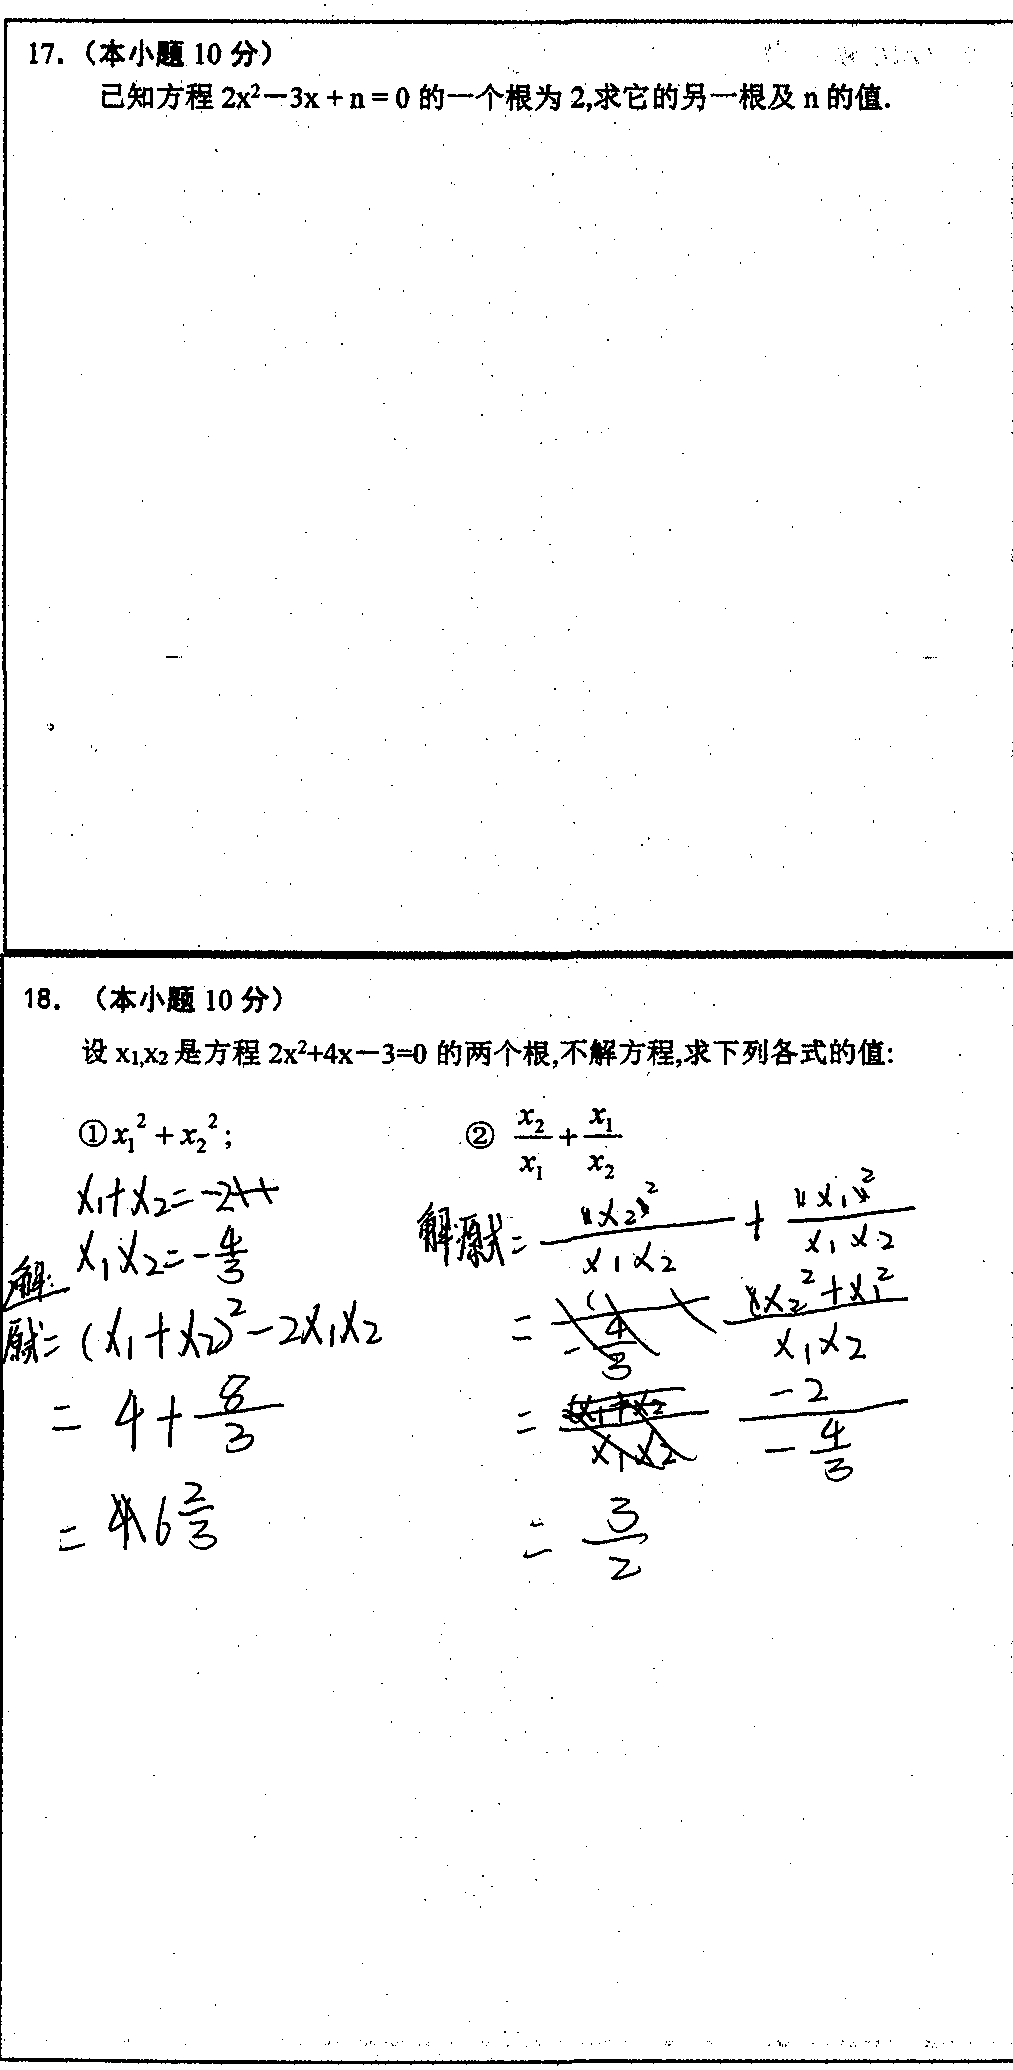 17.（本小题 10 分）
已知方程 2x²－3x + n = 0 的一个根为 2,求它的另一根及 n 的值.
18. （本小题 10 分）
设 x₁,x₂ 是方程 2x²+4x－3=0 的两个根,不解方程,求下列各式的值:
① x₁² + x₂² ;
② x₂/x₁ + x₁/x₂
x₁+x₂=-2
x₁x₂=-4/3
解:
原式=(x₁+x₂)²-2x₁x₂
= 4+8/3
= 6 2/3
解:原式= x₂²/x₁x₂ + x₁²/x₁x₂
= x₂²+x₁²/x₁x₂
= -2/-4/3
= 3/2